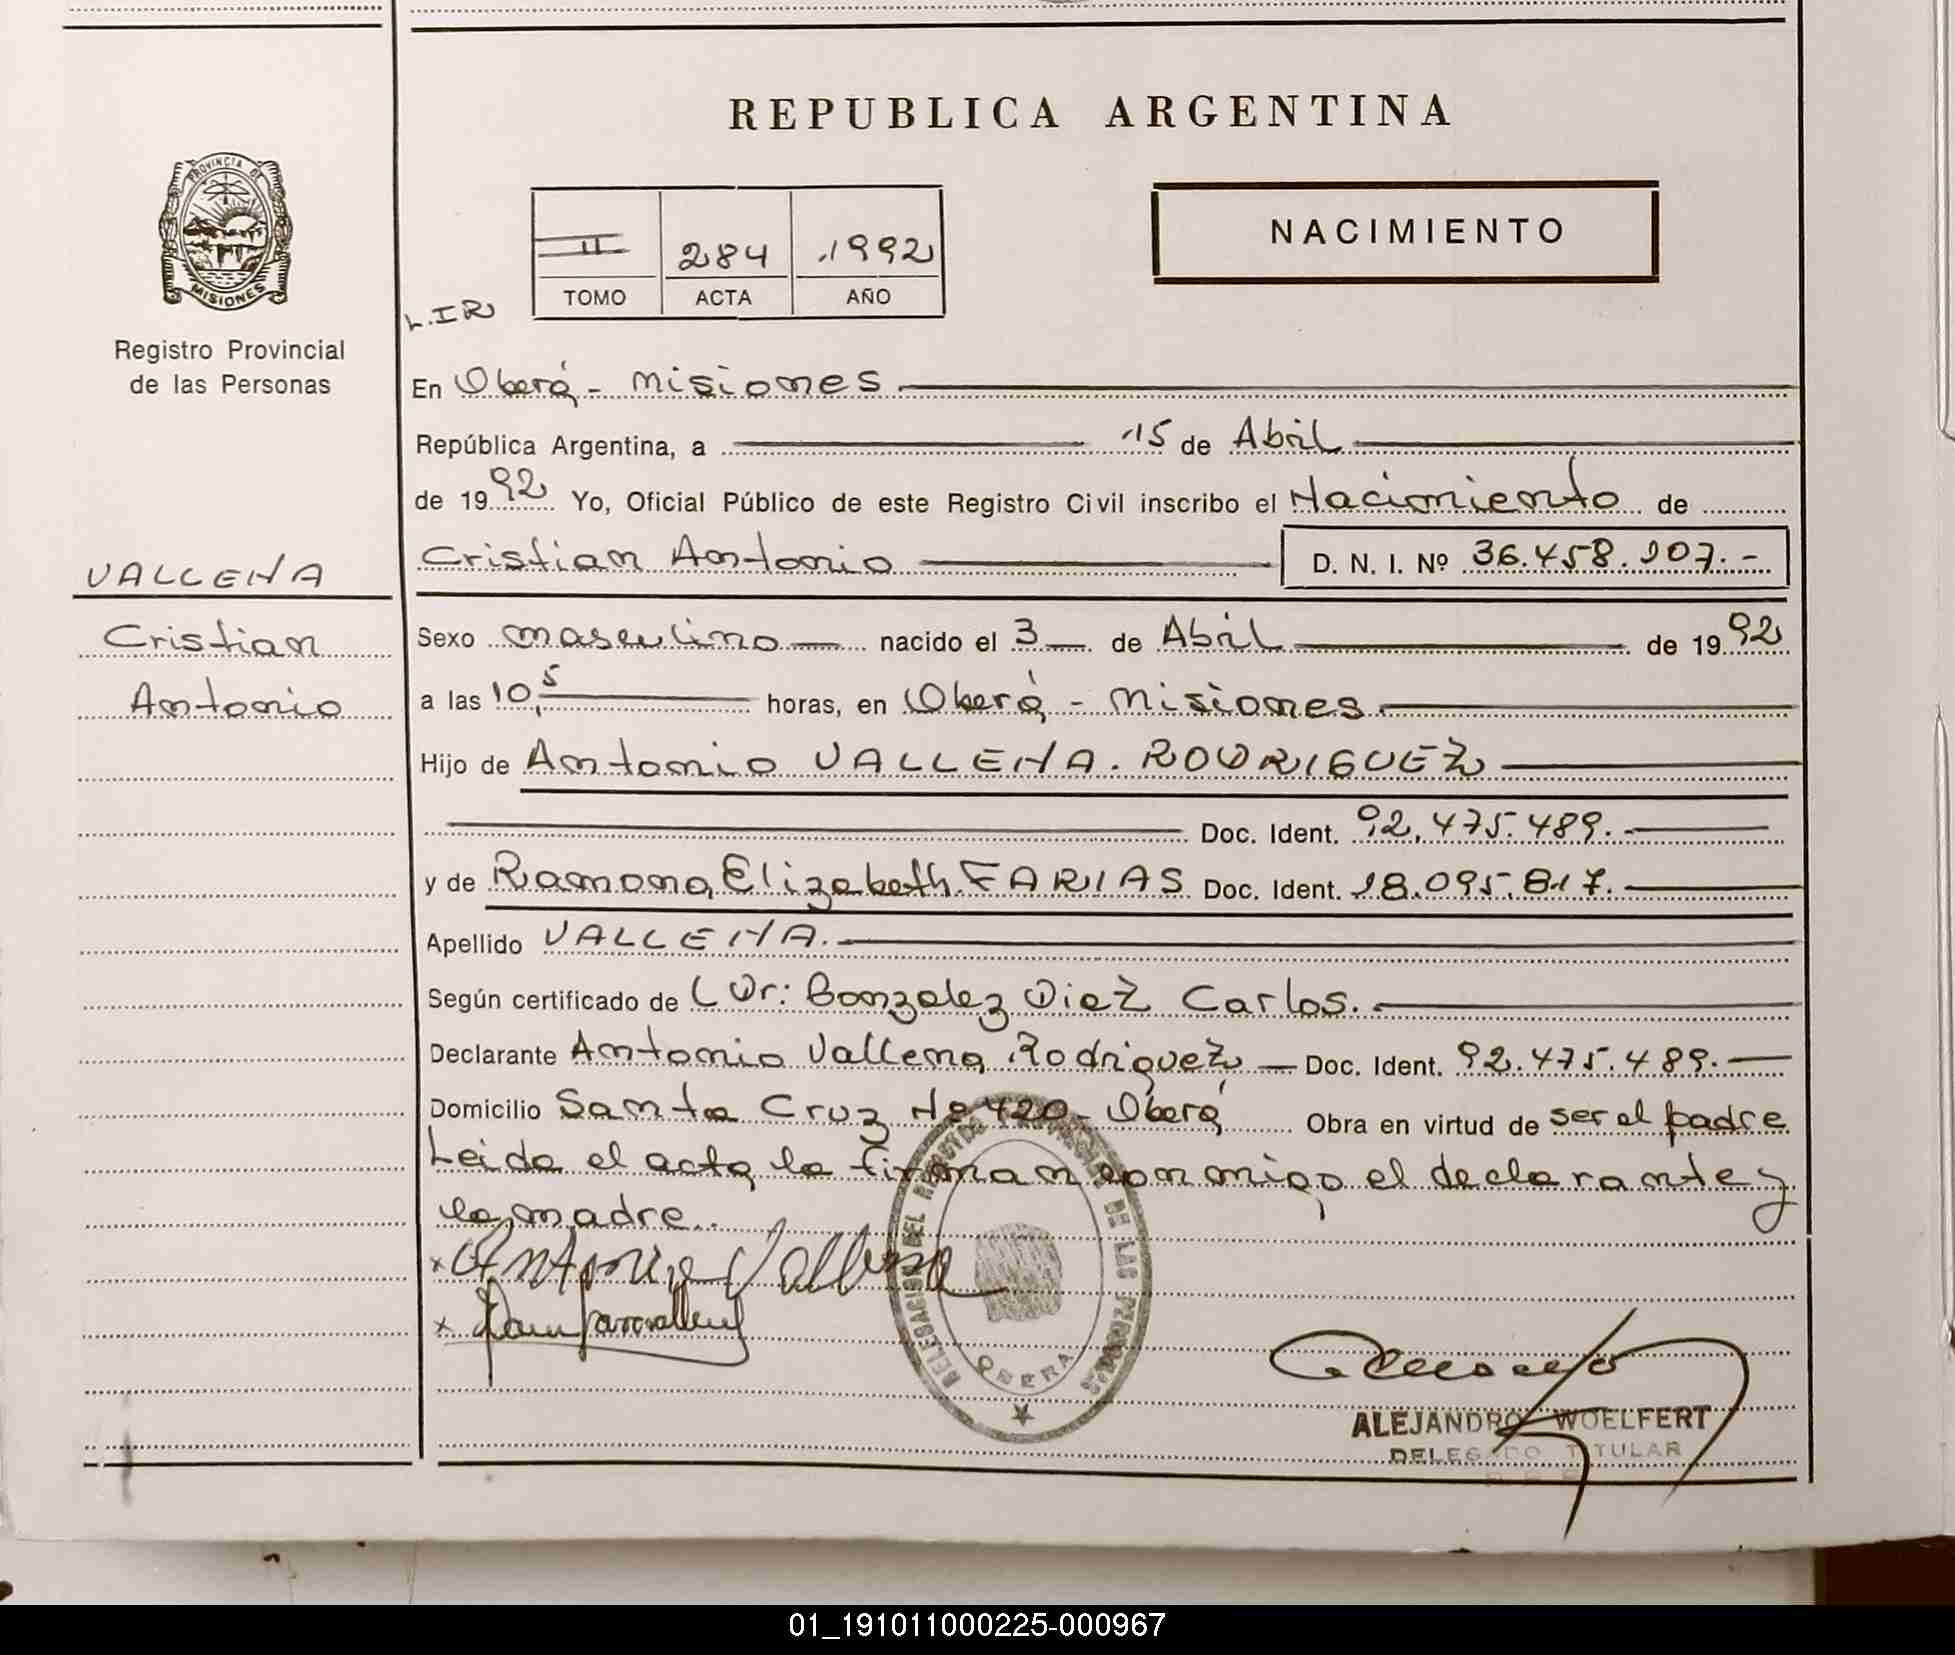 REPUBLICA ARGENTINA
PROVINCIA DE
MISIONES
Registro Provincial
de las Personas
NACIMIENTO
II 284 1992
TOMO ACTA AÑO
L.IR
En Oberá - Misiones
República Argentina, a 15 de Abril
de 1992 Yo, Oficial Público de este Registro Civil inscribo el Nacimiento de
Cristian Antonio D. N. I. Nº 36.458.107.-
VALLENA
Cristian
Antonio
Sexo masculino nacido el 3 de Abril de 1992
a las 10,5 horas, en Oberá - Misiones
Hijo de Antonio VALLENA. RODRIGUEZ
Doc. Ident. 92.475.489.
y de Ramona Elizabeth FARIAS Doc. Ident. 18.095.817.
Apellido VALLENA.
Según certificado de Dr: Gonzalez Diez Carlos.
Declarante Antonio Vallena Rodriguez Doc. Ident. 92.475.489.
Domicilio Santa Cruz Nº 420 - Oberá Obra en virtud de ser el padre
Leida el acta la firman conmigo el declarante y
la madre.
x Antonio Vallena
x
DELEGACION DEL REGISTRO PROVINCIAL DE LAS PERSONAS
OBERA
ALEJANDRO WOELFERT
DELEGADO TITULAR
01_191011000225-000967